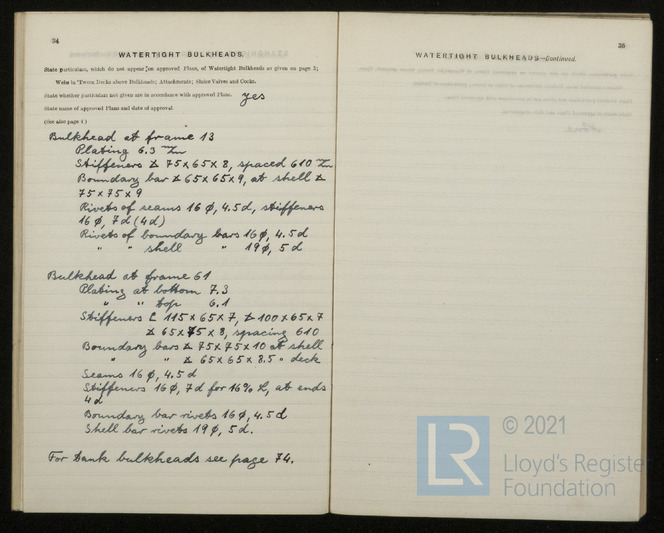 34
WATERTIGHT BULKHEADS.
State particulars, which do not appear on approved Plans, of Watertight Bulkheads as given on page 3;
Webs in 'Tween Decks above Bulkheads; Attachments; Sluice Valves and Cocks.
State whether particulars not given are in accordance with approved Plans. Yes
State name of approved Plans and date of approval.
(See also page 4.)
Bulkhead at frame 13
Plating 6.3 m/m
Stiffeners 75 x 65 x 8, spaced 610 m/m
Boundary bar 65 x 65 x 9, at shell
75 x 75 x 9
Rivets of seams 16 ø, 4.5 d, stiffeners
16 ø, 7 d (4 d)
Rivets of boundary bars 16 ø, 4.5 d
" " shell " 19 ø, 5 d
Bulkhead at frame 61
Plating at bottom 7.3
" " top 6.1
Stiffeners 115 x 65 x 7, 100 x 65 x 7
65 x 75 x 8, spacing 610
Boundary bars 75 x 75 x 10 at shell
" " 65 x 65 x 8.5 " deck
Seams 16 ø, 4.5 d
Stiffeners 16 ø, 7 d for 16% L, at ends
4 d
Boundary bar rivets 16 ø, 4.5 d
Shell bar rivets 19 ø, 5 d.
For tank bulkheads see page 74.
35
WATERTIGHT BULKHEADS—Continued.
LR
© 2021
Lloyd's Register
Foundation